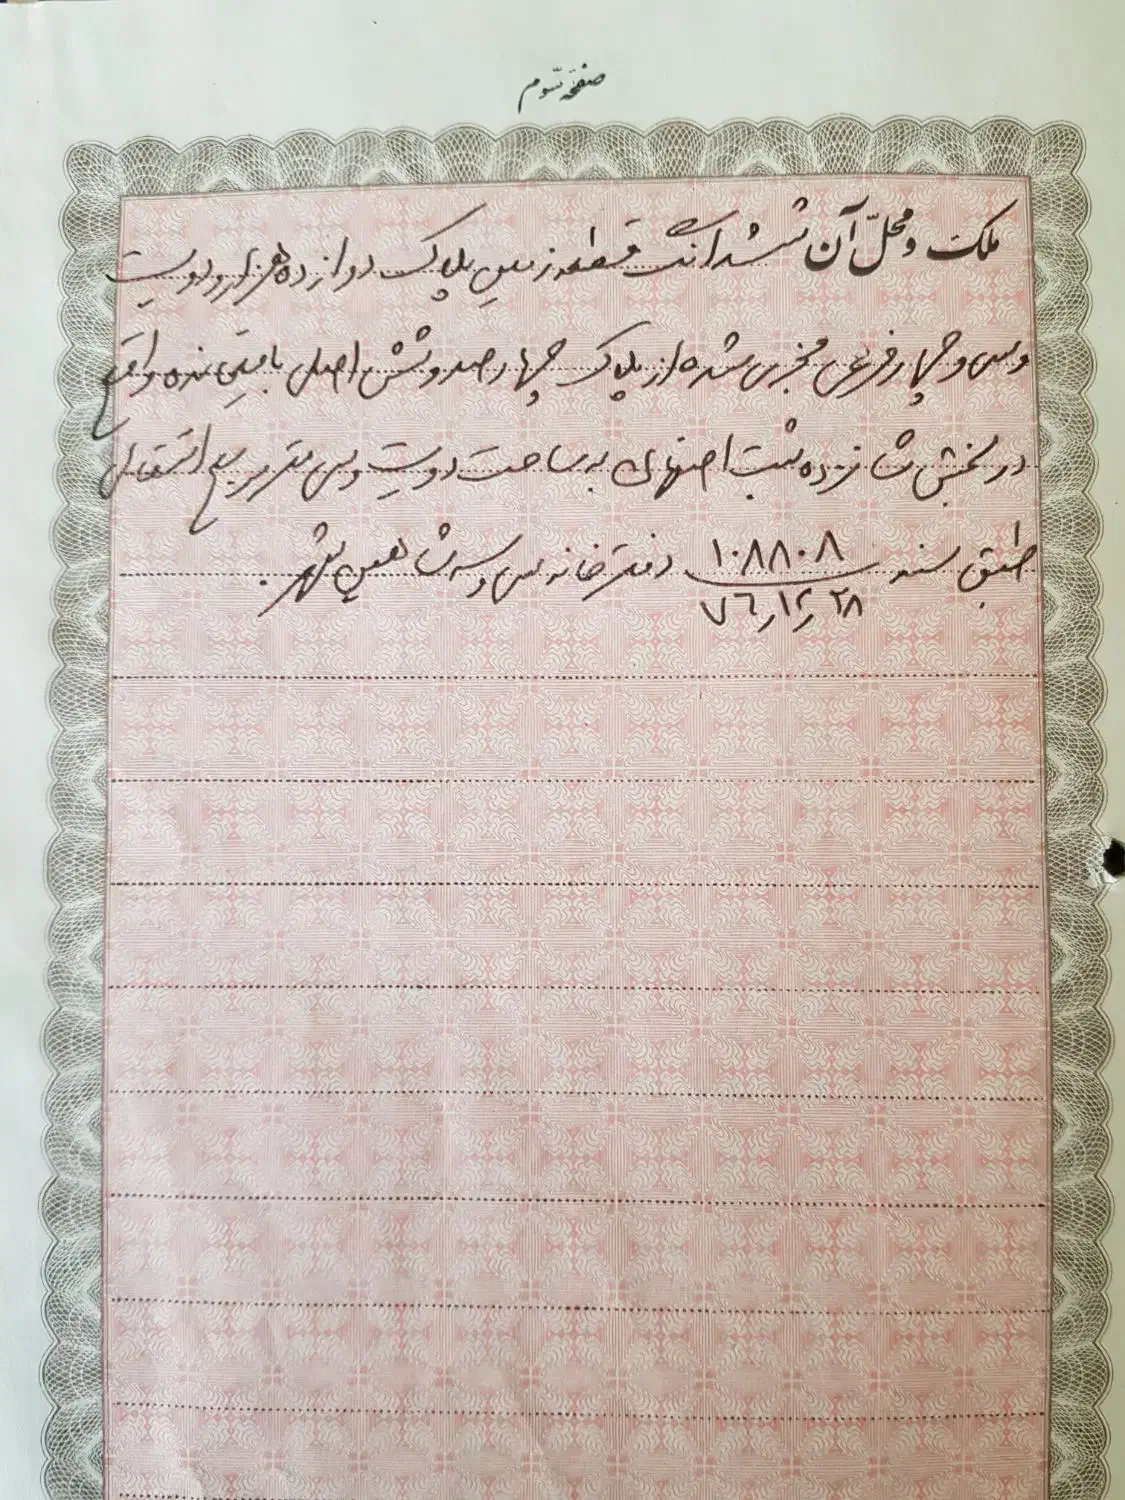 صفحه سوم
ملک و محل آن ششدانگ قطعه زمین پلاک دوازده هزار و دویست
و سی و چهار فرعی مجزی شده از پلاک چهارصد و شش اصلی باقیمانده واقع
در بخش شانزده ثبت اصفهان به مساحت دویست و سی متر مربع انتقالی
طبق سند ۱۰۸۸۰۸ دفترخانه سی و سه شاهین شهر.
۷۶/۱۲/۲۸